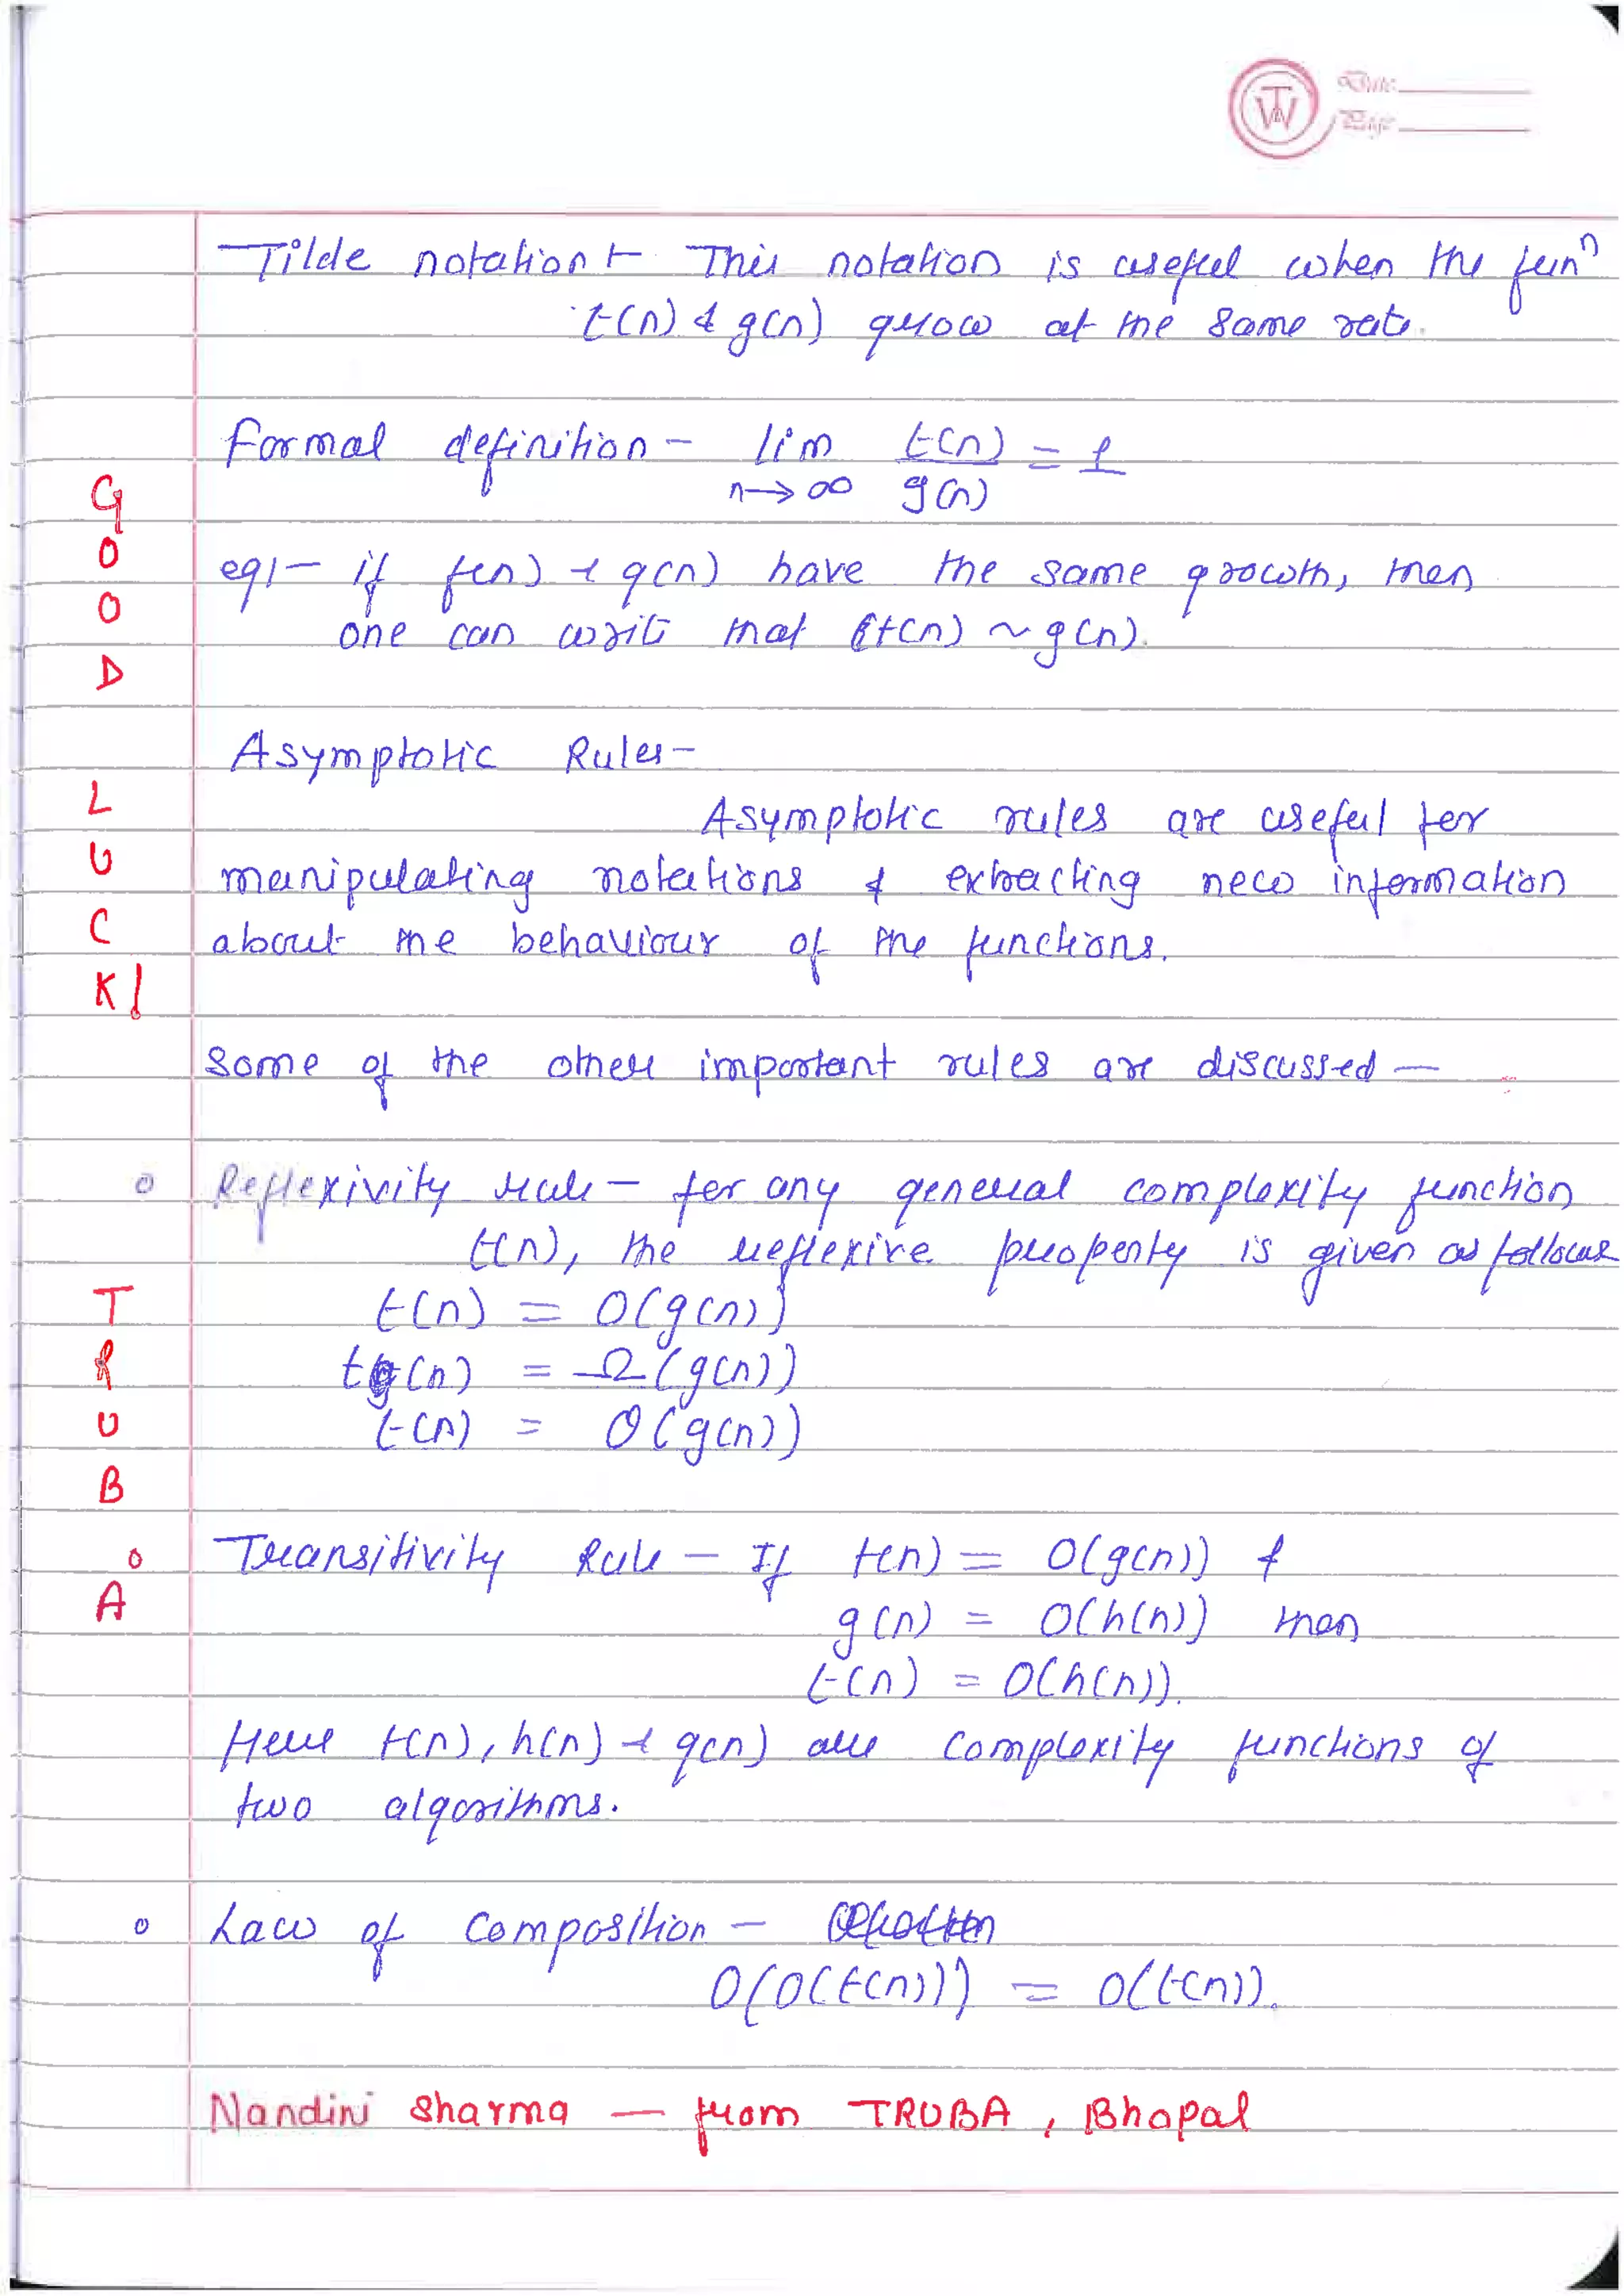 Date
Page
Tilde notation :- This notation is useful when the funⁿ
t(n) & g(n) grow at the same rate.
Formal definition - lim t(n) = 1
n→∞ g(n)
eg:- if t(n) & g(n) have the same growth, then
one can write that t(n) ~ g(n).
Asymptotic Rules -
Asymptotic rules are useful for
manipulating notations & extracting new information
about the behaviour of the functions.
Some of the other important rules are discussed —
o Reflexivity rule — for any general complexity function
t(n), the reflexive property is given as follows
t(n) = O(g(n))
t(n) = Ω(g(n))
t(n) = Θ(g(n))
o Transitivity Rule — If t(n) = O(g(n)) &
g(n) = O(h(n)) then
t(n) = O(h(n)).
Here t(n), h(n) & g(n) are complexity functions of
two algorithms.
o Law of Composition —
O(O(t(n))) = O(t(n)).
Nandini Sharma — from TRUBA, Bhopal
G
O
O
D
L
U
C
K!
T
R
U
B
A